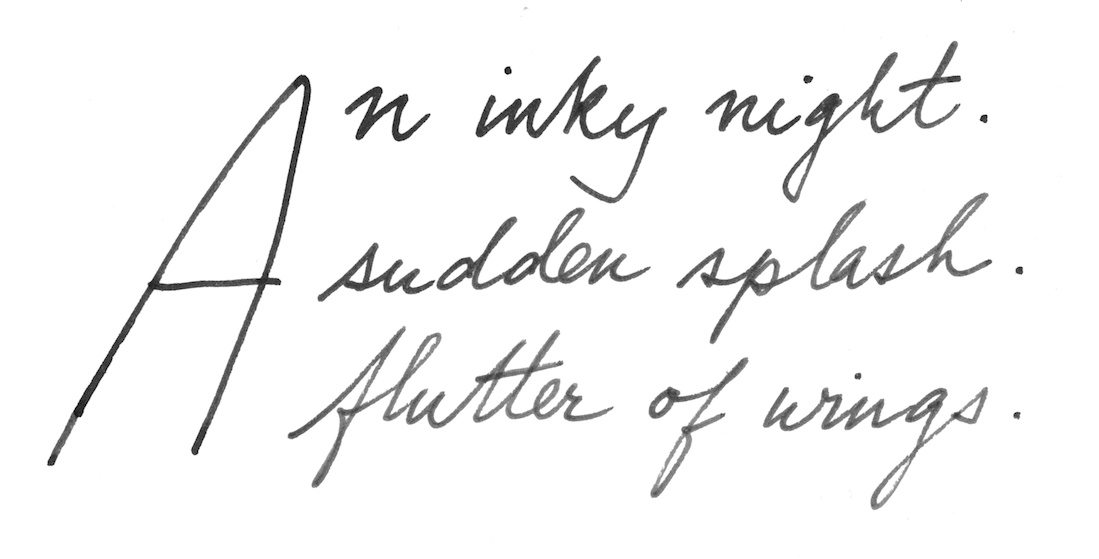 An inky night.
sudden splash.
flutter of wings.